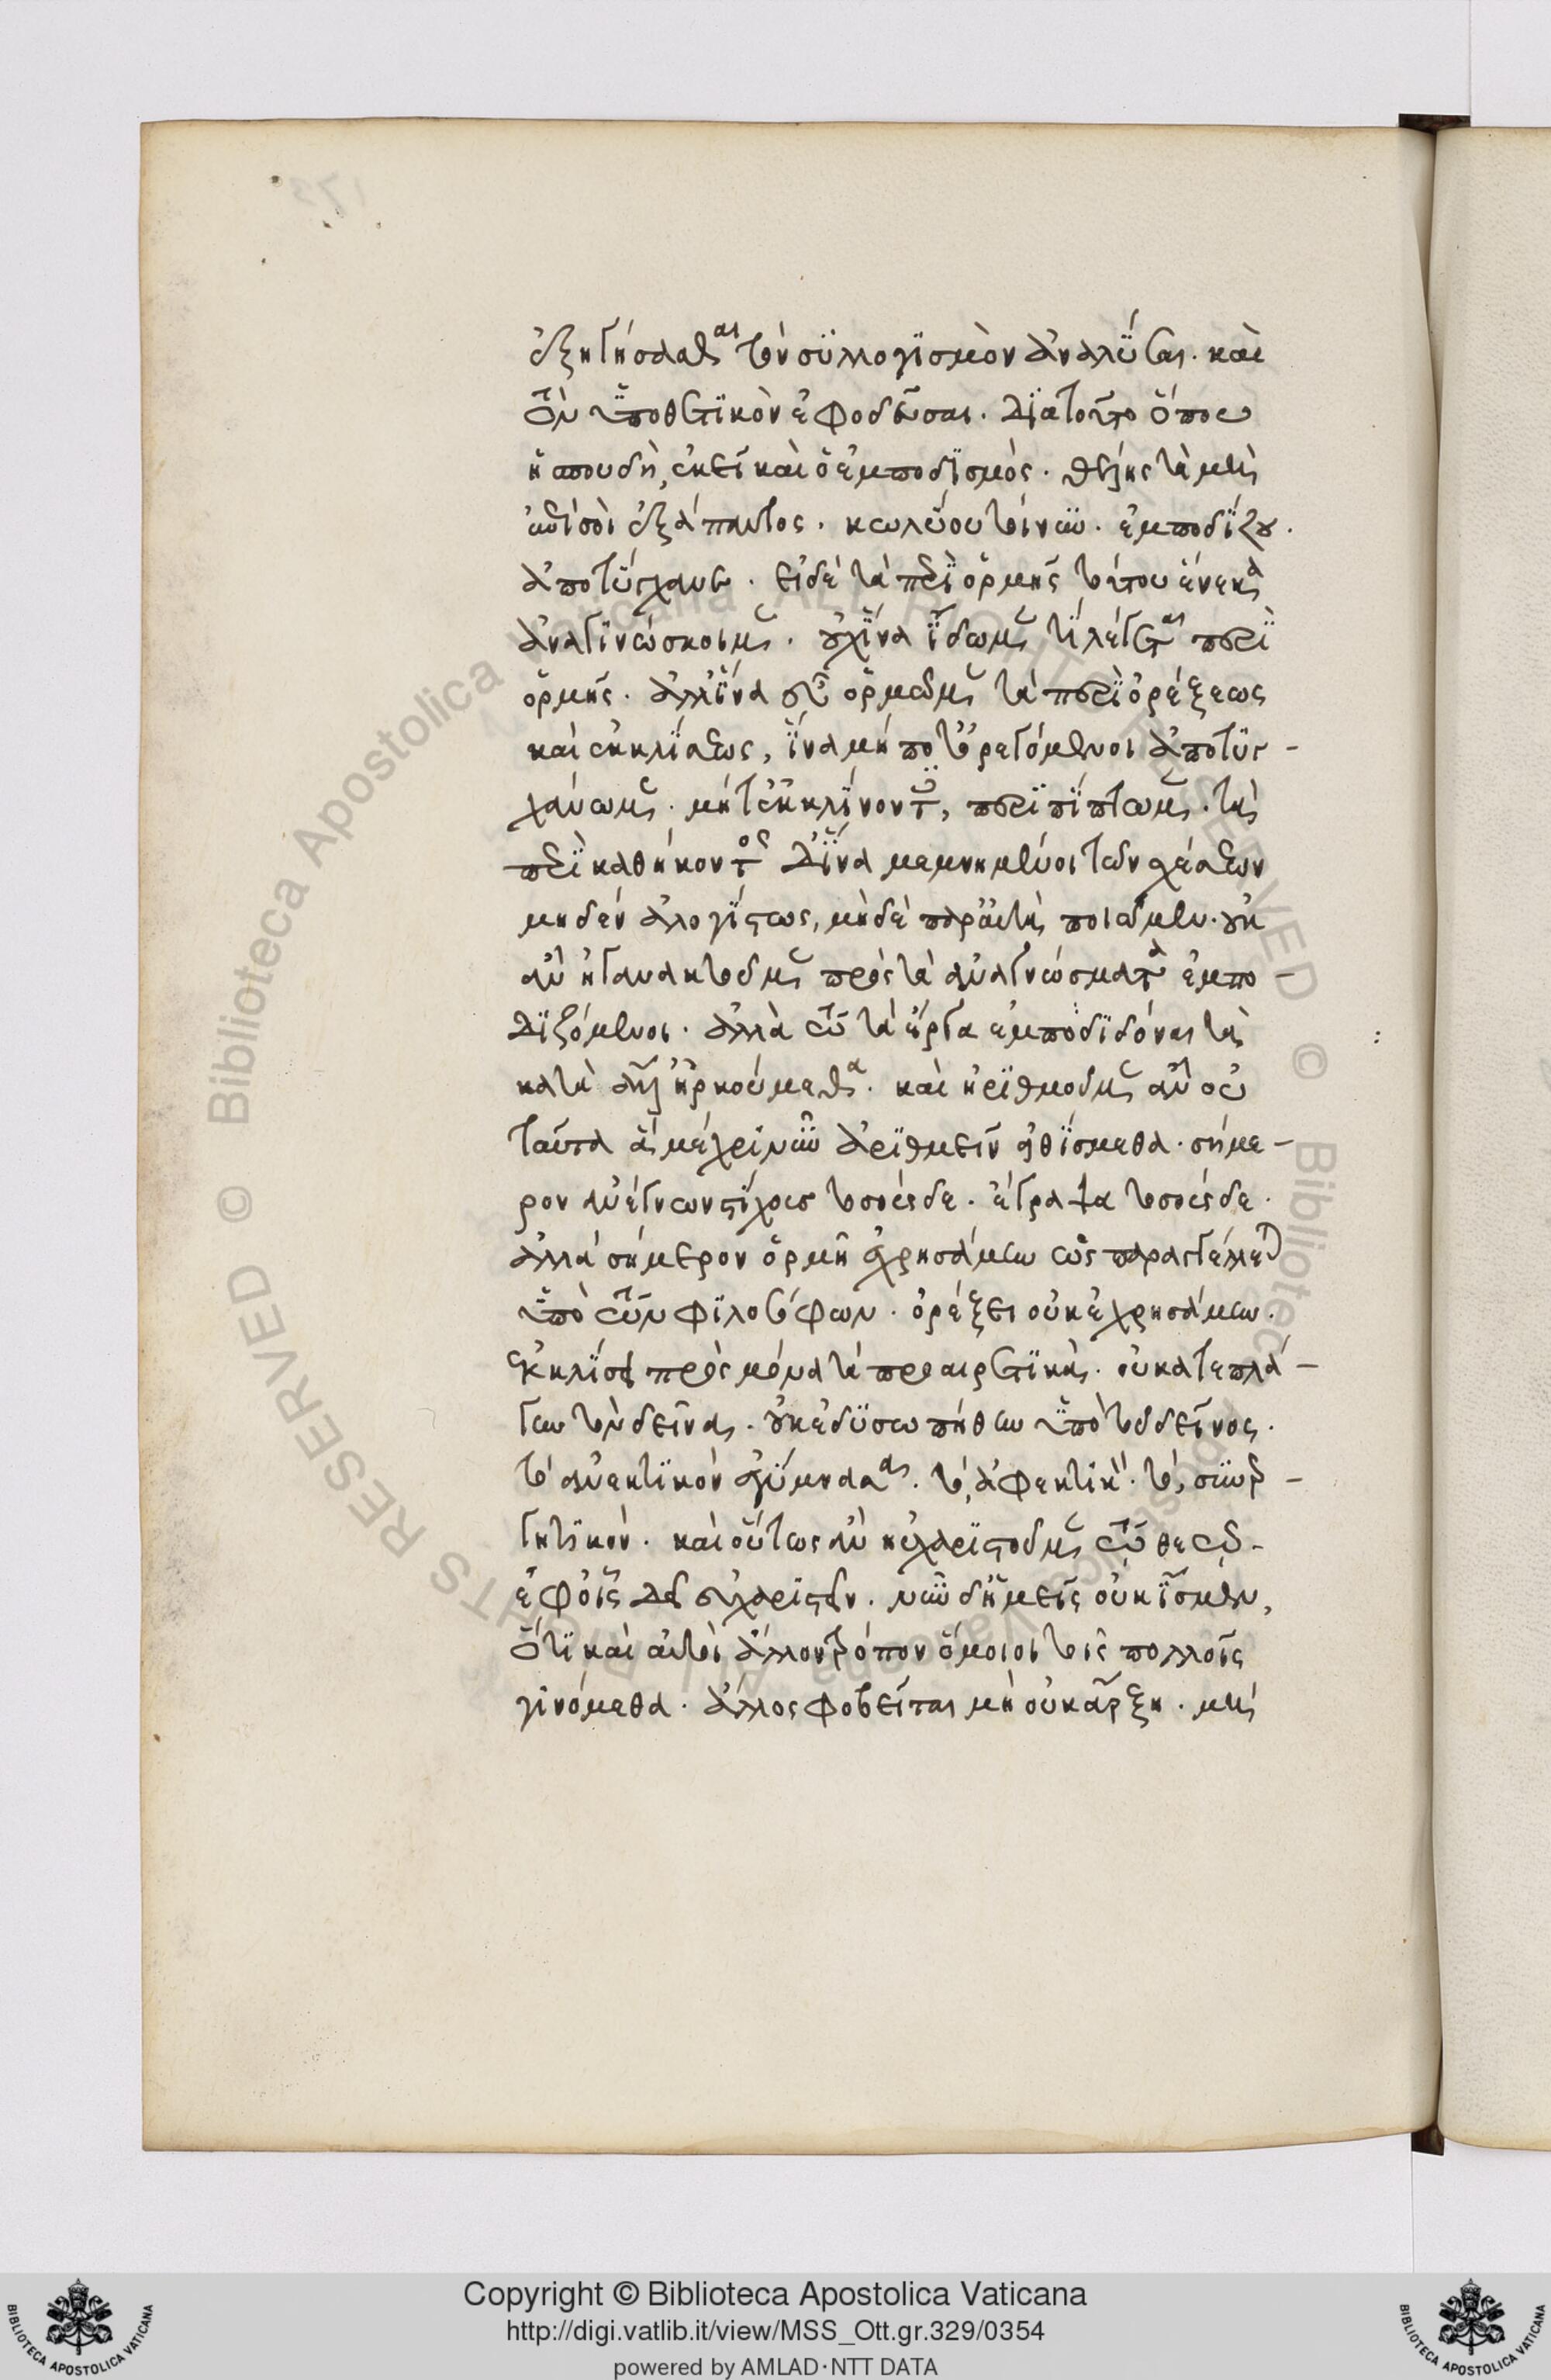 ἐξηγήσασθαι τὸν συλλογισμὸν ἀναλῦσαι. καὶ
τὸν ὑποθετικὸν ἐφοδεῦσαι. διατοῦτο ὅπου
ἡ σπουδὴ, ἐκεῖ καὶ ὁ ἐμποδισμός. θέλης τὰ μὴ
ἐπί σοι ἐξάπαντος. κωλύου τοίνυν. ἐμποδίζου.
ἀποτύγχανε. εἰ δὲ τὰ περὶ ὁρμῆς τούτου ἕνεκα
ἀναγινώσκοιμεν. οὐχ ἵνα ἴδωμεν τί λέγεται περὶ
ὁρμῆς. ἀλλ' ἵνα εὖ ὁρμῶμεν τὰ περὶ ὀρέξεως
καὶ ἐκκλίσεως, ἵνα μή ποτ' ὀρεγόμενοι ἀποτυγ-
χάνωμεν. μήτ' ἐκκλίνοντες, περιπίπτωμεν. τὰ
περὶ καθήκοντος δ' ἵνα μεμνημένοι τῶν σχέσεων
μηδὲν ἀλογίστως, μηδὲ παρ' αὐτὰ ποιῶμεν. οὐκ
ἂν ἠγανακτοῦμεν πρὸς τὰ ἀναγνώσματα ἐμπο-
διζόμενοι. ἀλλὰ τῷ τὰ ἔργα ἐμποδιδόναι τὰ
κατάλληλα ἠρκούμεθα. καὶ ἠριθμοῦμεν ἂν οὐ
ταῦτα ἃ μέχρι νῦν ἀριθμεῖν εἰθίσμεθα. σήμε-
ρον ἀνέγνων στίχους τοσούσδε. ἔγραψα τοσούσδε.
ἀλλὰ σήμερον ὁρμῇ ἐχρησάμην ὡς παραγγέλλεται
ὑπὸ τῶν φιλοσόφων. ὀρέξει οὐκ ἐχρησάμην.
ἐκκλίσει πρὸς μόνα τὰ προαιρετικά. οὐ κατεπλά-
γην τὸν δεῖνα. οὐκ ἐδυσωπήθην ὑπὸ τοῦ δεῖνος.
τὸ ἀνεκτικὸν ἐγύμνασα. τὸ ἀφεκτικὸν. τὸ συνερ-
γητικόν. καὶ οὕτως ἂν ηὐχαριστοῦμεν τῷ θεῷ
ἐφ' οἷς δεῖ εὐχαριστεῖν. νῦν δ' ἡμεῖς οὐκ ἴσμεν,
ὅτι καὶ αὐτοὶ ἄλλον τρόπον ὅμοιοι τοῖς πολλοῖς
γινόμεθα. ἄλλος φοβεῖται μὴ οὐκ ἄρξῃ. μὴ
Copyright © Biblioteca Apostolica Vaticana
http://digi.vatlib.it/view/MSS_Ott.gr.329/0354
powered by AMLAD·NTT DATA